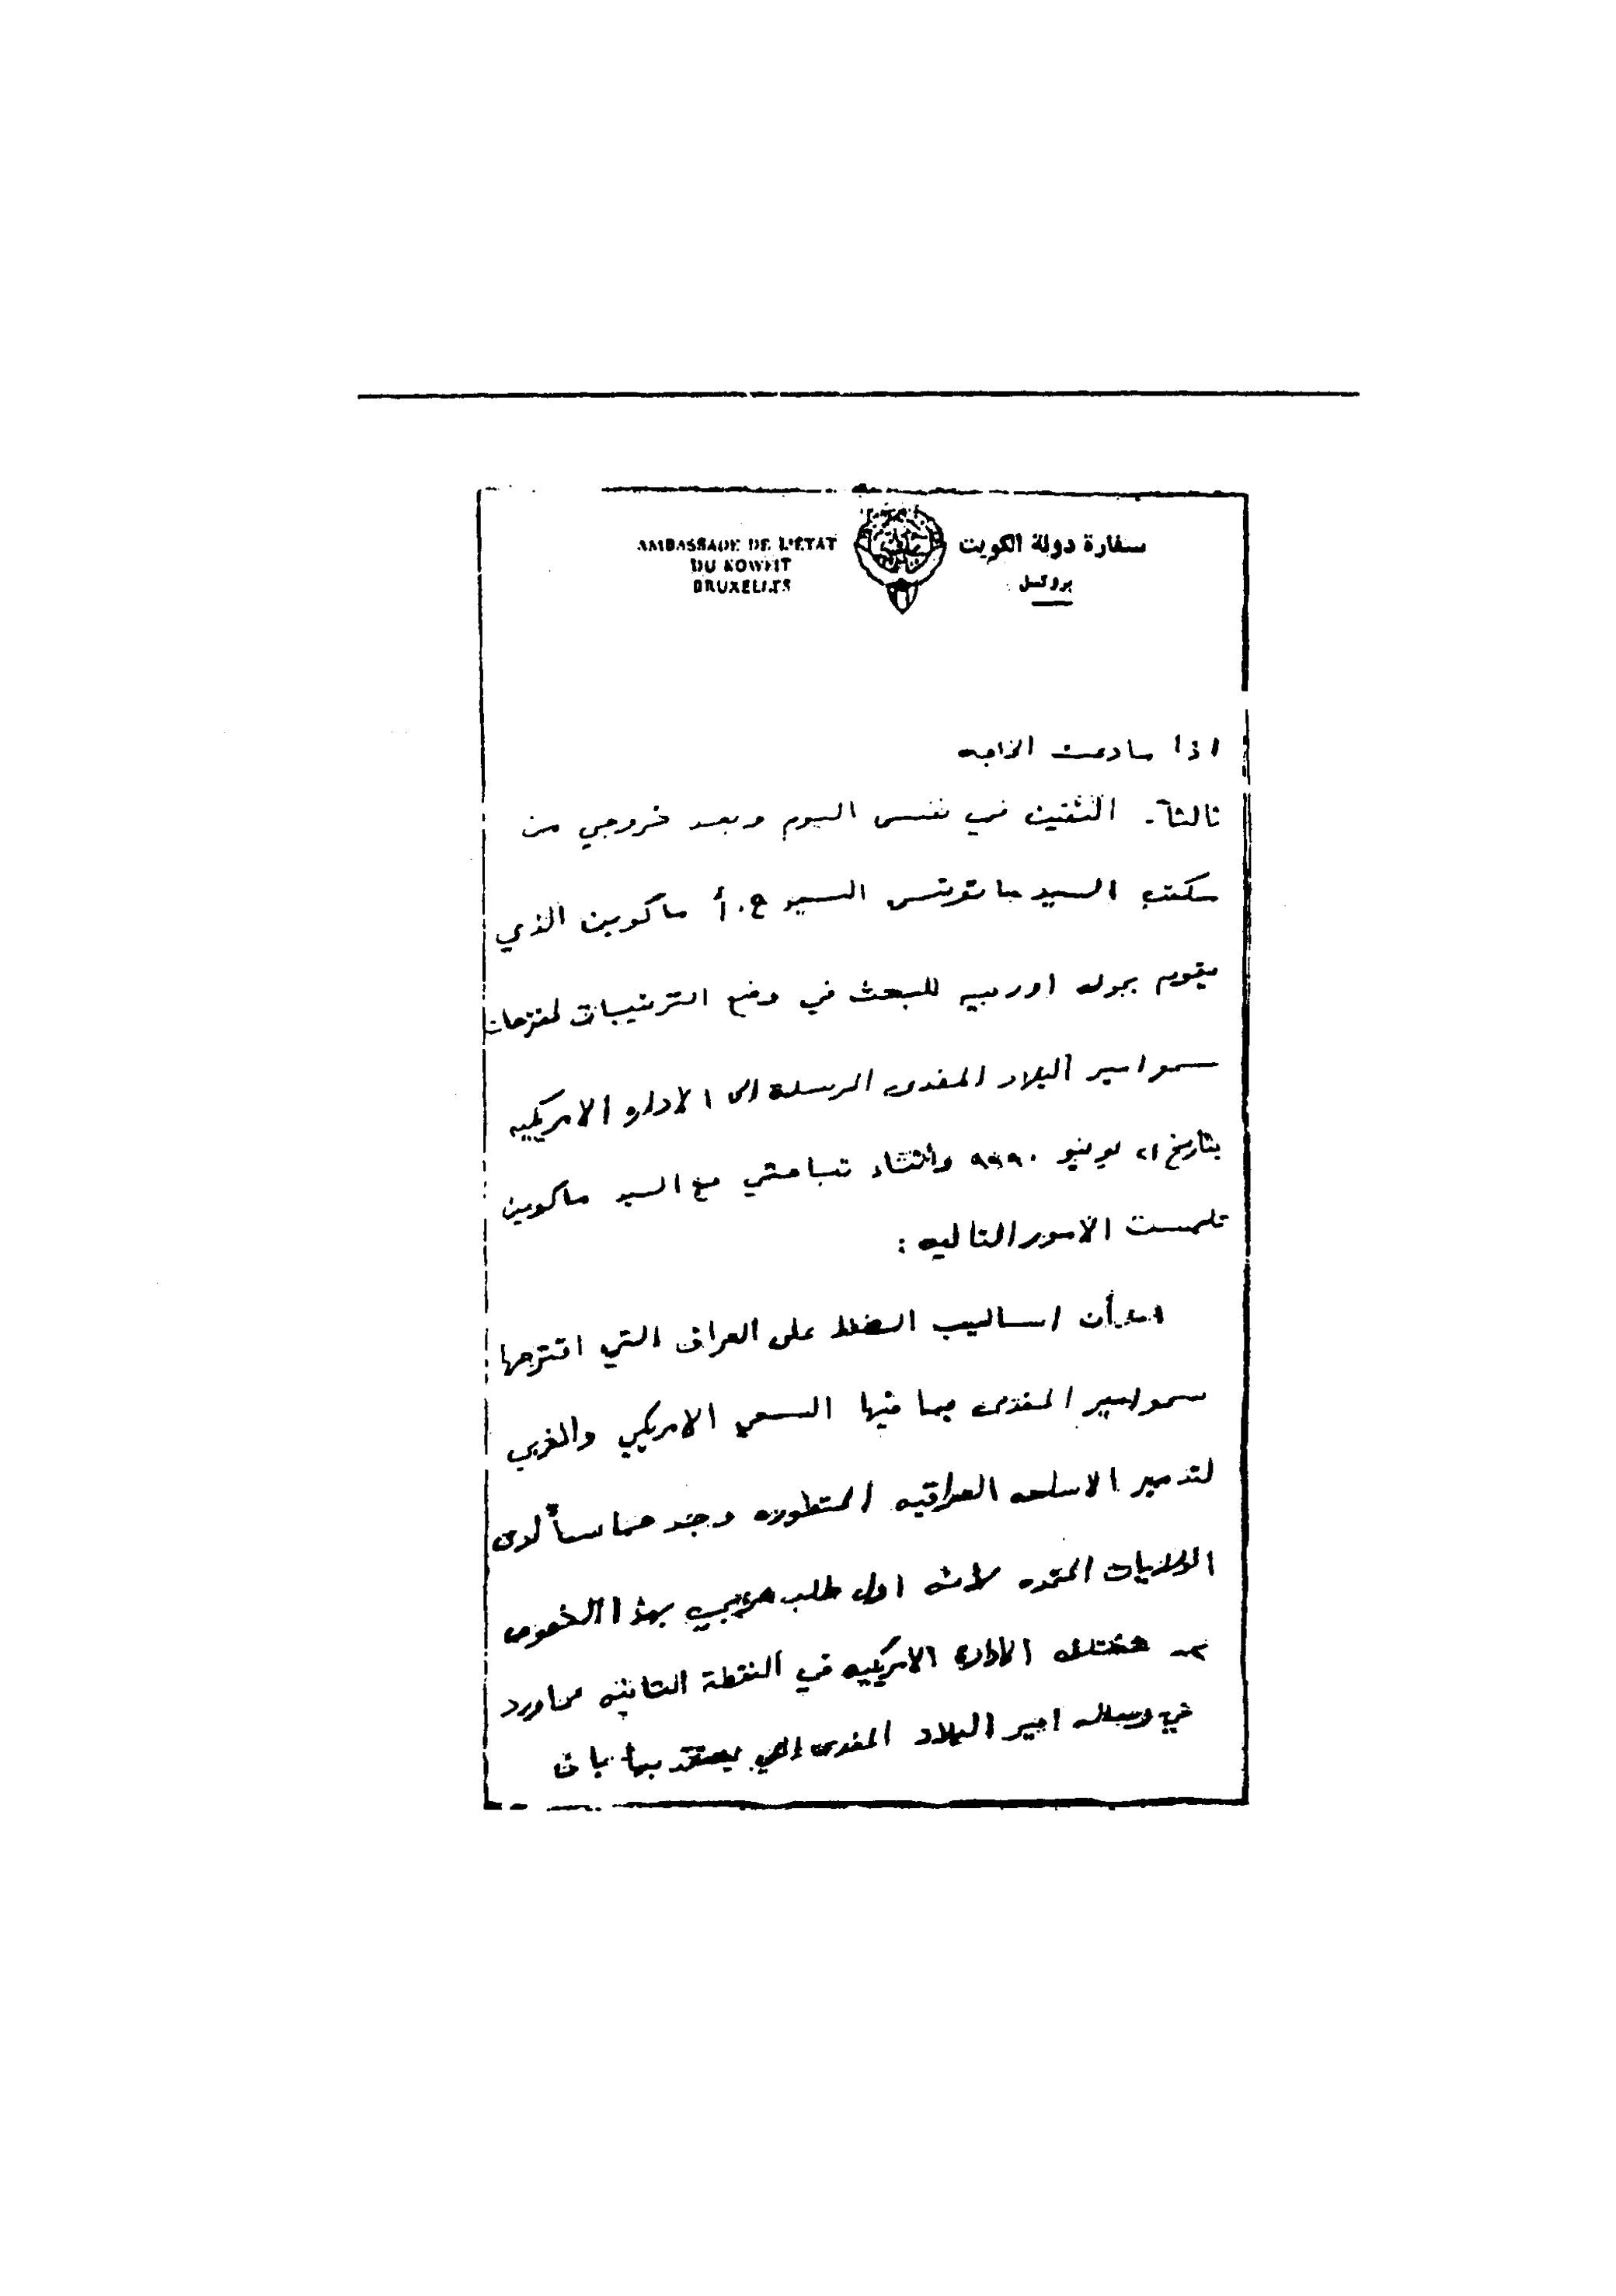 AMBASSADE DE L'ÉTAT
DU KOWEIT
BRUXELLES
سفارة دولة الكويت
بروكسل
اذا مادعت الحاجه
ثالثاً - التقيت في نفس اليوم وبعد خروجي من
مكتب السيد السيد ج.أ ماكوين الذي
يقوم بجوله اوربيه للبحث في وضع الترتيبات لمقترحات
سمو امير البلاد المفدى المرسلة الى الاداره الامريكيه
بتاريخ ٢١ يونيو ١٩٩٠ واثناء تباحثي مع السيد ماكوين
تلمست الامور التاليه :
أن اساليب الضغط على العراق التي اقترحها
سمو امير المفدى بما فيها السعي الامريكي والغربي
لتدمير الاسلحه العراقيه المتطوره وجد حماساً لدى
الولايات المتحده لأنه اول طلب بهذا الخصوص
تختلف الادارة الامريكيه في النقطة الثانيه عما ورد
في رساله امير البلاد المفدى التي يعتقد بها بان